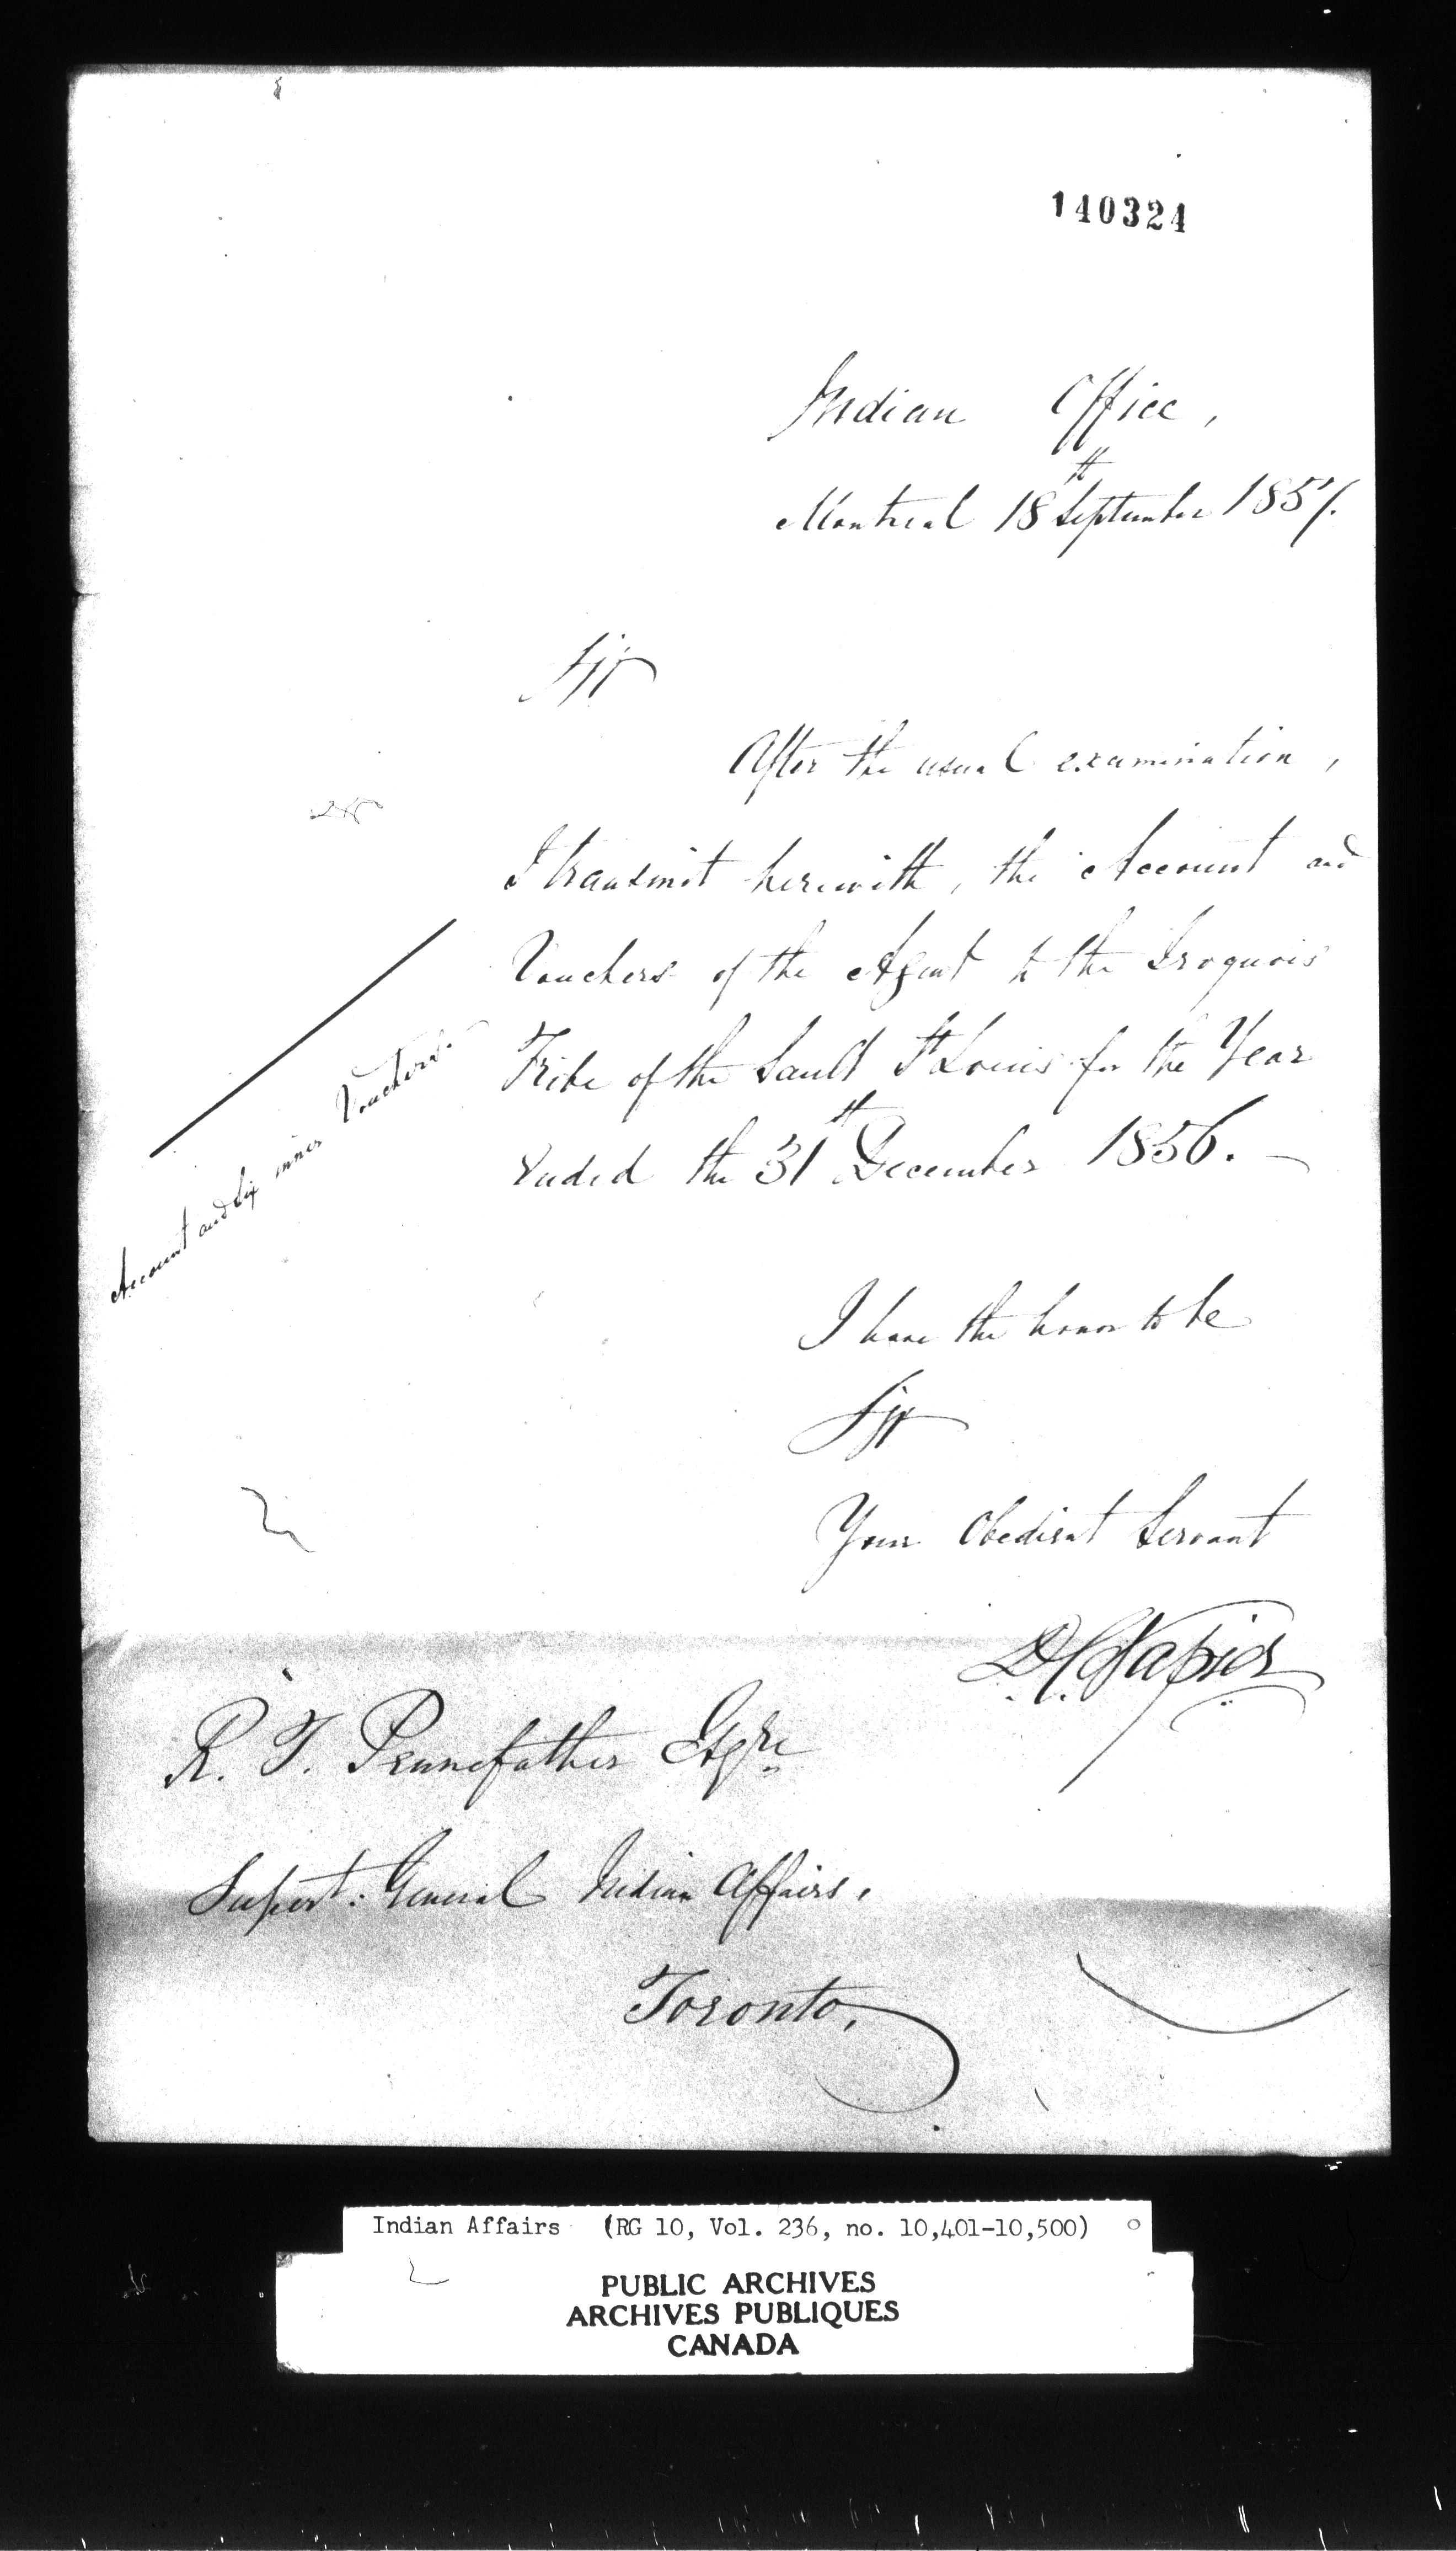 140324
Indian Office,
Montreal 18th September 1857.
Sir
After the usual examination,
I transmit herewith, the Account and
Vouchers of the Agent to the Iroquois
Tribe of the Sault St Louis for the Year
Ended the 31th December 1856. —
Account and Six inner Vouchers.
I have the honor to be
Sir
Your Obedient Servant
D. C. Napier
R. T. Pennefather Esqre
Supert: General Indian Affairs,
Toronto,
Indian Affairs (RG 10, Vol. 236, no. 10,401-10,500)
PUBLIC ARCHIVES
ARCHIVES PUBLIQUES
CANADA